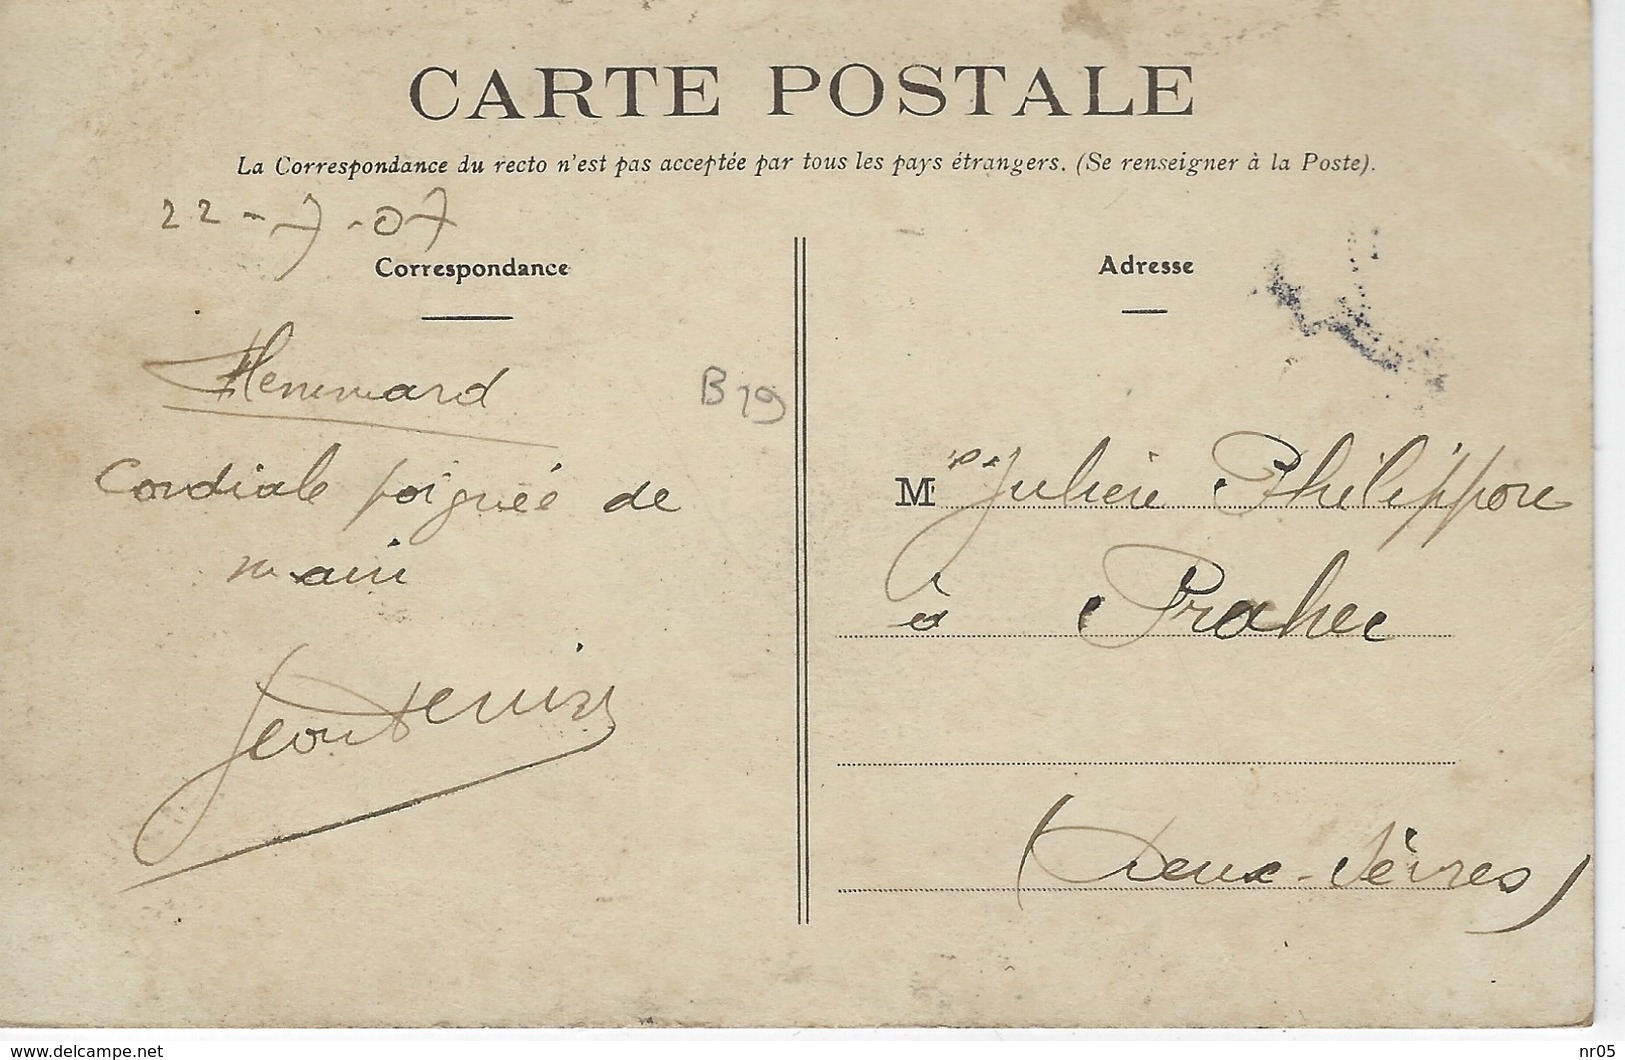 CARTE POSTALE
La Correspondance du recto n'est pas acceptée par tous les pays étrangers. (Se renseigner à la Poste).
22-7-07
Correspondance
Cordiale poignée de
main
Jean Denis
B19
Adresse
M Julien Philippon
à Prahec
(Deux-Sèvres)
www.delcampe.net
nr05